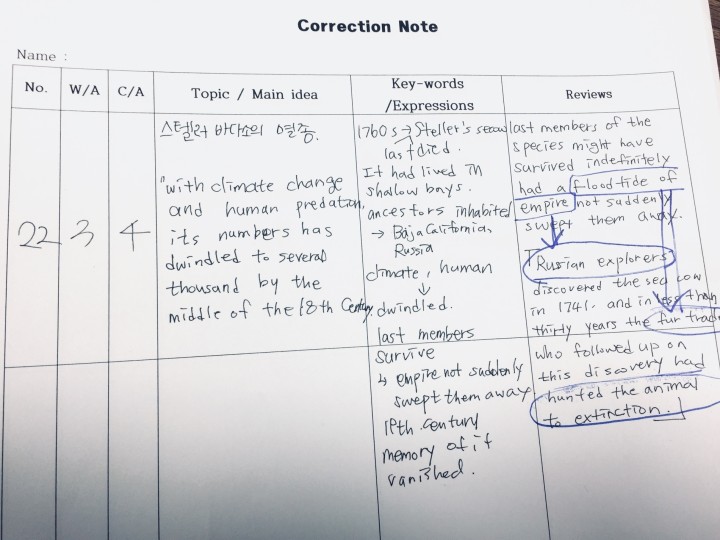 Correction Note
Name :
No.
W/A
C/A
Topic / Main idea
Key-words
/Expressions
Reviews
22
3
4
스텔러 바다소의 멸종.
"with climate change
and human predation,
its numbers has
dwindled to several
thousand by the
middle of the 18th Century.
1760s → Steller's seacow
last died.
It had lived in
shallow bays.
ancestors inhabited
→ Baja California,
Russia
climate, human
↓
dwindled.
last members
survive
↳ empire not suddenly
swept them away
19th century
memory of it
vanished.
last members of the
species might have
survived indefinitely
had a flood tide of
empire not suddenly
swept them away.
「Russian explorers
discovered the sea cow
in 1741. and in less than
thirty years the fur trad
who followed up on
this discovery had
hunted the animal
to extinction.」